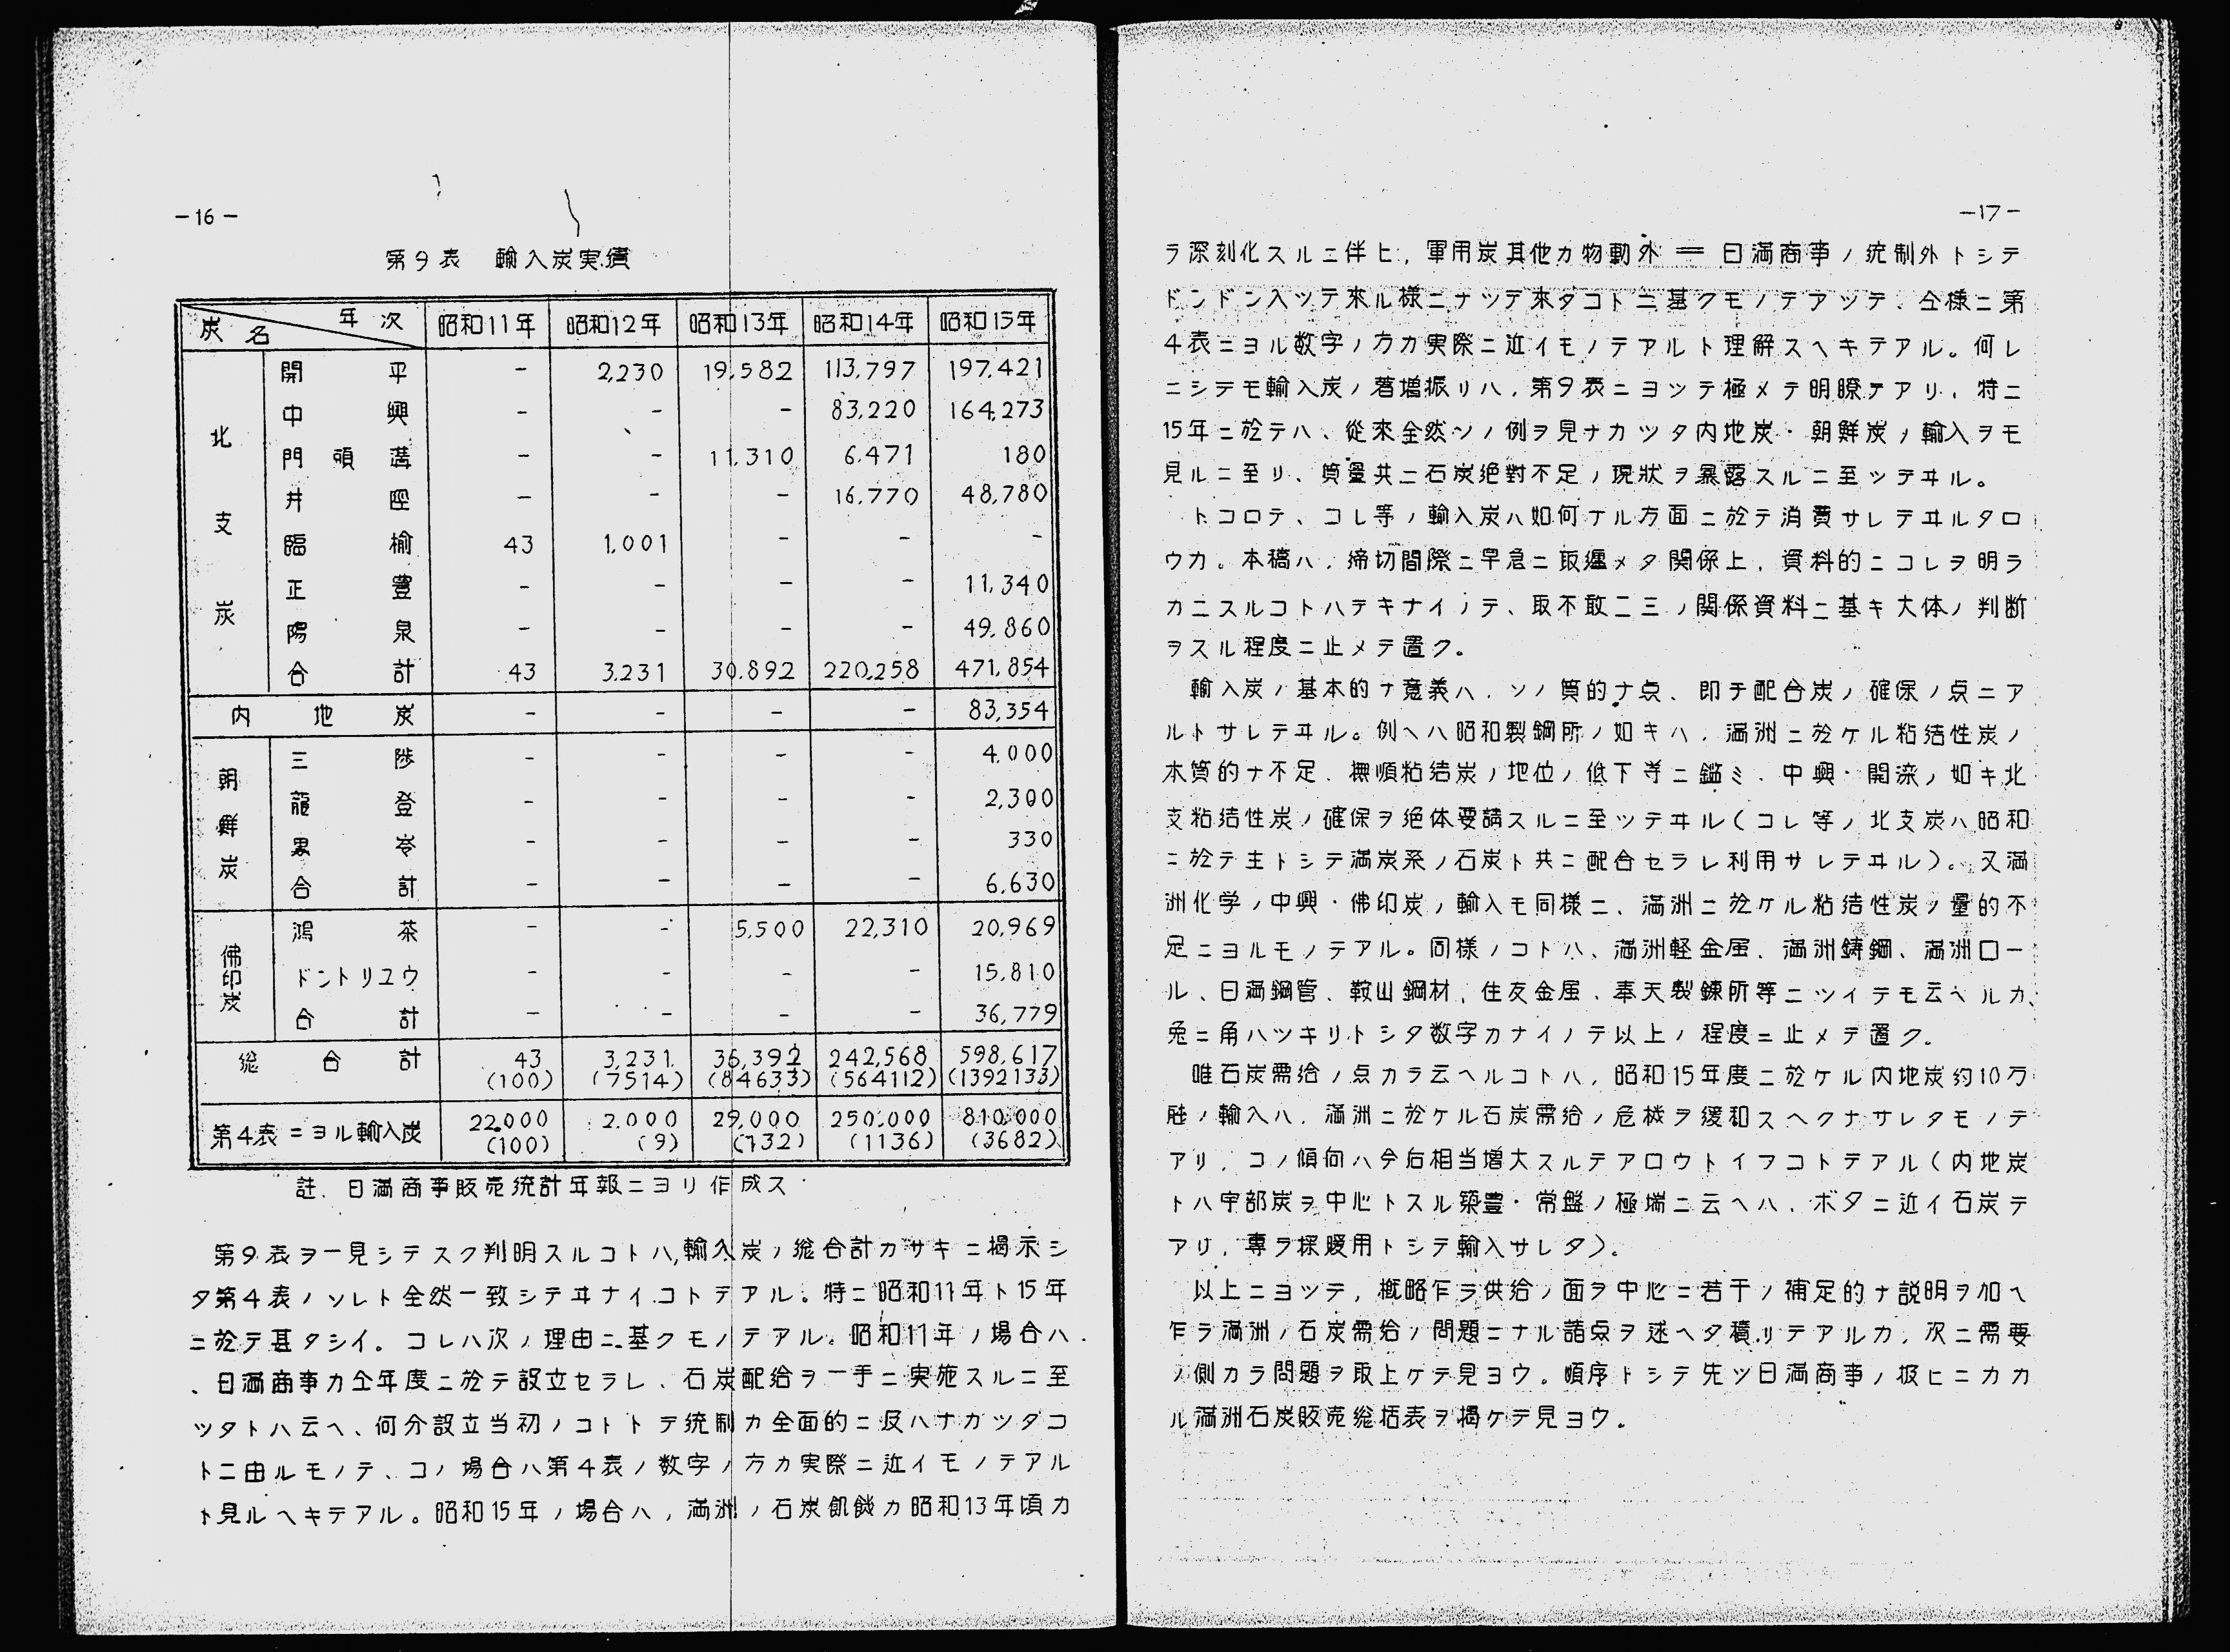 -16-
第9表 輸入炭実績
炭名 年次 昭和11年 昭和12年 昭和13年 昭和14年 昭和15年
北支炭
開平 - 2,230 19,582 113,797 197,421
中興 - - - 83,220 164,273
門頭溝 - - 11,310 6,471 180
井陘 - - - 16,770 48,780
臨楡 43 1,001 - - -
正豊 - - - - 11,340
陽泉 - - - - 49,860
合計 43 3,231 30,892 220,258 471,854
内地炭 - - - - 83,354
朝鮮炭
三陟 - - - - 4,000
龍登 - - - - 2,300
黒岺 - - - - 330
合計 - - - - 6,630
佛印炭
鴻茶 - - 5,500 22,310 20,969
ドントリユウ - - - - 15,810
合計 - - - - 36,779
総合計 43 3,231 36,392 242,568 598,617
(100) (7514) (84633) (564112) (1392133)
第4表ニヨル輸入炭 22,000 2,000 29,000 250,000 810,000
(100) (9) (132) (1136) (3682)
註. 日満商事販売統計年報ニヨリ作成ス
第9表ヲ一見シテスク判明スルコトハ,輸入炭ノ総合計カサキニ掲示シ
タ第4表ノソレト全然一致シテヰナイコトテアル。特ニ昭和11年ト15年
ニ於テ甚タシイ。コレハ次ノ理由ニ基クモノテアル。昭和11年ノ場合ハ
、日満商事カ仝年度ニ於テ設立セラレ、石炭配給ヲ一手ニ実施スルニ至
ツタトハ云ヘ、何分設立当初ノコトトテ統制カ全面的ニ及ハナカツタコ
トニ由ルモノテ、コノ場合ハ第4表ノ数字ノ方カ実際ニ近イモノテアル
ト見ルヘキテアル。昭和15年ノ場合ハ,満洲ノ石炭飢餓カ昭和13年頃カ
-17-
ラ深刻化スルニ伴ヒ,軍用炭其他カ物動外＝日満商事ノ統制外トシテ
ドンドン入ツテ來ル様ニナツテ來タコトニ基クモノテアツテ、仝様ニ第
4表ニヨル数字ノ方カ実際ニ近イモノテアルト理解スヘキテアル。何レ
ニシテモ輸入炭ノ著増振リハ,第9表ニヨツテ極メテ明瞭テアリ,特ニ
15年ニ於テハ、從來全然ソノ例ヲ見ナカツタ内地炭・朝鮮炭ノ輸入ヲモ
見ルニ至リ、質量共ニ石炭絶對不足ノ現狀ヲ暴露スルニ至ツテヰル。
トコロテ、コレ等ノ輸入炭ハ如何ナル方面ニ於テ消費サレテヰルタロ
ウカ。本稿ハ,締切間際ニ早急ニ取纏メタ関係上,資料的ニコレヲ明ラ
カニスルコトハテキナイノテ、取不敢二三ノ関係資料ニ基キ大体ノ判断
ヲスル程度ニ止メテ置ク。
輸入炭ノ基本的ナ意義ハ,ソノ質的ナ点、即チ配合炭ノ確保ノ点ニア
ルトサレテヰル。例ヘハ昭和製鋼所ノ如キハ,満洲ニ於ケル粘結性炭ノ
本質的ナ不足、撫順粘結炭ノ地位ノ低下等ニ鑑ミ、中興・開滦ノ如キ北
支粘結性炭ノ確保ヲ絶体要請スルニ至ツテヰル(コレ等ノ北支炭ハ昭和
ニ於テ主トシテ満炭系ノ石炭ト共ニ配合セラレ利用サレテヰル)。又満
洲化学ノ中興・佛印炭ノ輸入モ同様ニ、満洲ニ於ケル粘結性炭ノ量的不
足ニヨルモノテアル。同様ノコトハ、満洲軽金属、満洲鋳鋼、満洲ロー
ル、日満鋼管、鞍山鋼材,住友金属、奉天製錬所等ニツイテモ云ヘルカ、
兔ニ角ハツキリトシタ数字カナイノテ以上ノ程度ニ止メテ置ク。
唯石炭需給ノ点カラ云ヘルコトハ,昭和15年度ニ於ケル内地炭約10万
瓲ノ輸入ハ,満洲ニ於ケル石炭需給ノ危機ヲ緩和スヘクナサレタモノテ
アリ,コノ傾向ハ今后相当増大スルテアロウトイフコトテアル(内地炭
トハ宇部炭ヲ中心トスル築豊・常盤ノ極端ニ云ヘハ、ボタニ近イ石炭テ
アリ,専ラ採暖用トシテ輸入サレタ)。
以上ニヨツテ,概略乍ラ供給ノ面ヲ中心ニ若干ノ補足的ナ説明ヲ加ヘ
乍ラ満洲ノ石炭需給ノ問題ニナル諸点ヲ述ヘタ積リテアルカ,次ニ需要
ノ側カラ問題ヲ取上ケテ見ヨウ。順序トシテ先ツ日満商事ノ扱ヒニカカ
ル満洲石炭販売総括表ヲ掲ケテ見ヨウ。